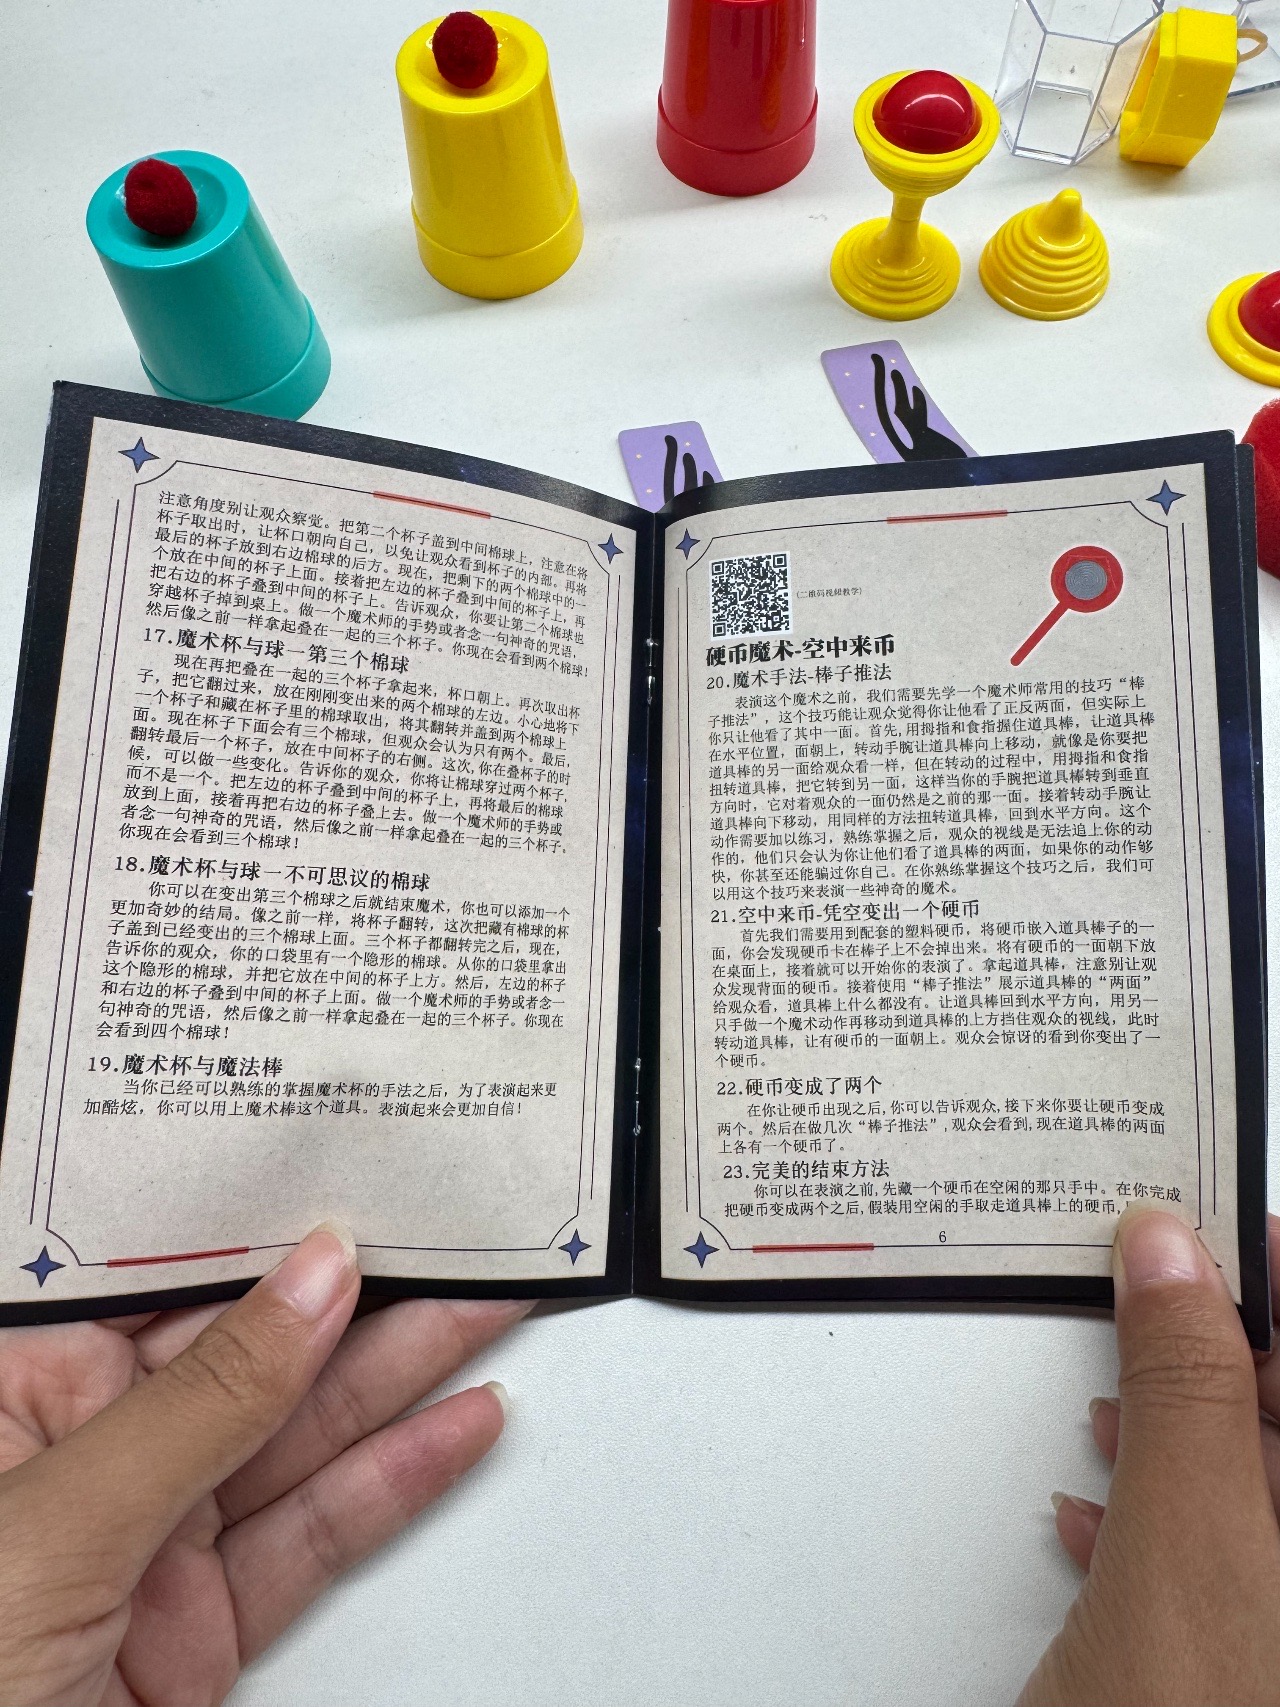 注意角度别让观众察觉。把第二个杯子盖到中间棉球上，注意在将
杯子取出时，让杯口朝向自己，以免让观众看到杯子的内部。再将
最后的杯子放到右边棉球的后方。现在，把剩下的两个棉球中的一
个放在中间的杯子上面。接着把左边的杯子叠到中间的杯子上，再
把右边的杯子叠到中间的杯子上。告诉观众，你要让第二个棉球也
穿越杯子掉到桌上。做一个魔术师的手势或者念一句神奇的咒语，
然后像之前一样拿起叠在一起的三个杯子。你现在会看到两个棉球！
17.魔术杯与球一第三个棉球
现在再把叠在一起的三个杯子拿起来，杯口朝上。再次取出杯
子，把它翻过来，放在刚刚变出来的两个棉球的左边。小心地将下
一个杯子和藏在杯子里的棉球取出，将其翻转并盖到两个棉球上
面。现在杯子下面会有三个棉球，但观众会认为只有两个。最后，
翻转最后一个杯子，放在中间杯子的右侧。这次，你在叠杯子的时
候，可以做一些变化。告诉你的观众，你将让棉球穿过两个杯子，
而不是一个。把左边的杯子叠到中间的杯子上，再将最后的棉球
放到上面，接着再把右边的杯子叠上去。做一个魔术师的手势或
者念一句神奇的咒语，然后像之前一样拿起叠在一起的三个杯子。
你现在会看到三个棉球！
18.魔术杯与球一不可思议的棉球
你可以在变出第三个棉球之后就结束魔术，你也可以添加一个
更加奇妙的结局。像之前一样，将杯子翻转，这次把藏有棉球的杯
子盖到已经变出的三个棉球上面。三个杯子都翻转完之后，现在，
告诉你的观众，你的口袋里有一个隐形的棉球。从你的口袋里拿出
这个隐形的棉球，并把它放在中间的杯子上方。然后，左边的杯子
和右边的杯子叠到中间的杯子上面。做一个魔术师的手势或者念一
句神奇的咒语，然后像之前一样拿起叠在一起的三个杯子。你现在
会看到四个棉球！
19.魔术杯与魔法棒
当你已经可以熟练的掌握魔术杯的手法之后，为了表演起来更
加酷炫，你可以用上魔术棒这个道具。表演起来会更加自信！
(二维码视频教学)
硬币魔术-空中来币
20.魔术手法-棒子推法
表演这个魔术之前，我们需要先学一个魔术师常用的技巧“棒
子推法”，这个技巧能让观众觉得你让他看了正反两面，但实际上
你只让他看了其中一面。首先，用拇指和食指握住道具棒，让道具棒
在水平位置，面朝上，转动手腕让道具棒向上移动，就像是你要把
道具棒的另一面给观众看一样，但在转动的过程中，用拇指和食指
扭转道具棒，把它转到另一面，这样当你的手腕把道具棒转到垂直
方向时，它对着观众的一面仍然是之前的那一面。接着转动手腕让
道具棒向下移动，用同样的方法扭转道具棒，回到水平方向。这个
动作需要加以练习，熟练掌握之后，观众的视线是无法追上你的动
作的，他们只会认为你让他们看了道具棒的两面，如果你的动作够
快，你甚至还能骗过你自己。在你熟练掌握这个技巧之后，我们可
以用这个技巧来表演一些神奇的魔术。
21.空中来币-凭空变出一个硬币
首先我们需要用到配套的塑料硬币，将硬币嵌入道具棒子的一
面，你会发现硬币卡在棒子上不会掉出来。将有硬币的一面朝下放
在桌面上，接着就可以开始你的表演了。拿起道具棒，注意别让观
众发现背面的硬币。接着使用“棒子推法”展示道具棒的“两面”
给观众看，道具棒上什么都没有。让道具棒回到水平方向，用另一
只手做一个魔术动作再移动到道具棒的上方挡住观众的视线，此时
转动道具棒，让有硬币的一面朝上。观众会惊讶的看到你变出了一
个硬币。
22.硬币变成了两个
在你让硬币出现之后，你可以告诉观众，接下来你要让硬币变成
两个。然后在做几次“棒子推法”，观众会看到，现在道具棒的两面
上各有一个硬币了。
23.完美的结束方法
你可以在表演之前，先藏一个硬币在空闲的那只手中。在你完成
把硬币变成两个之后，假装用空闲的手取走道具棒上的硬币，
6